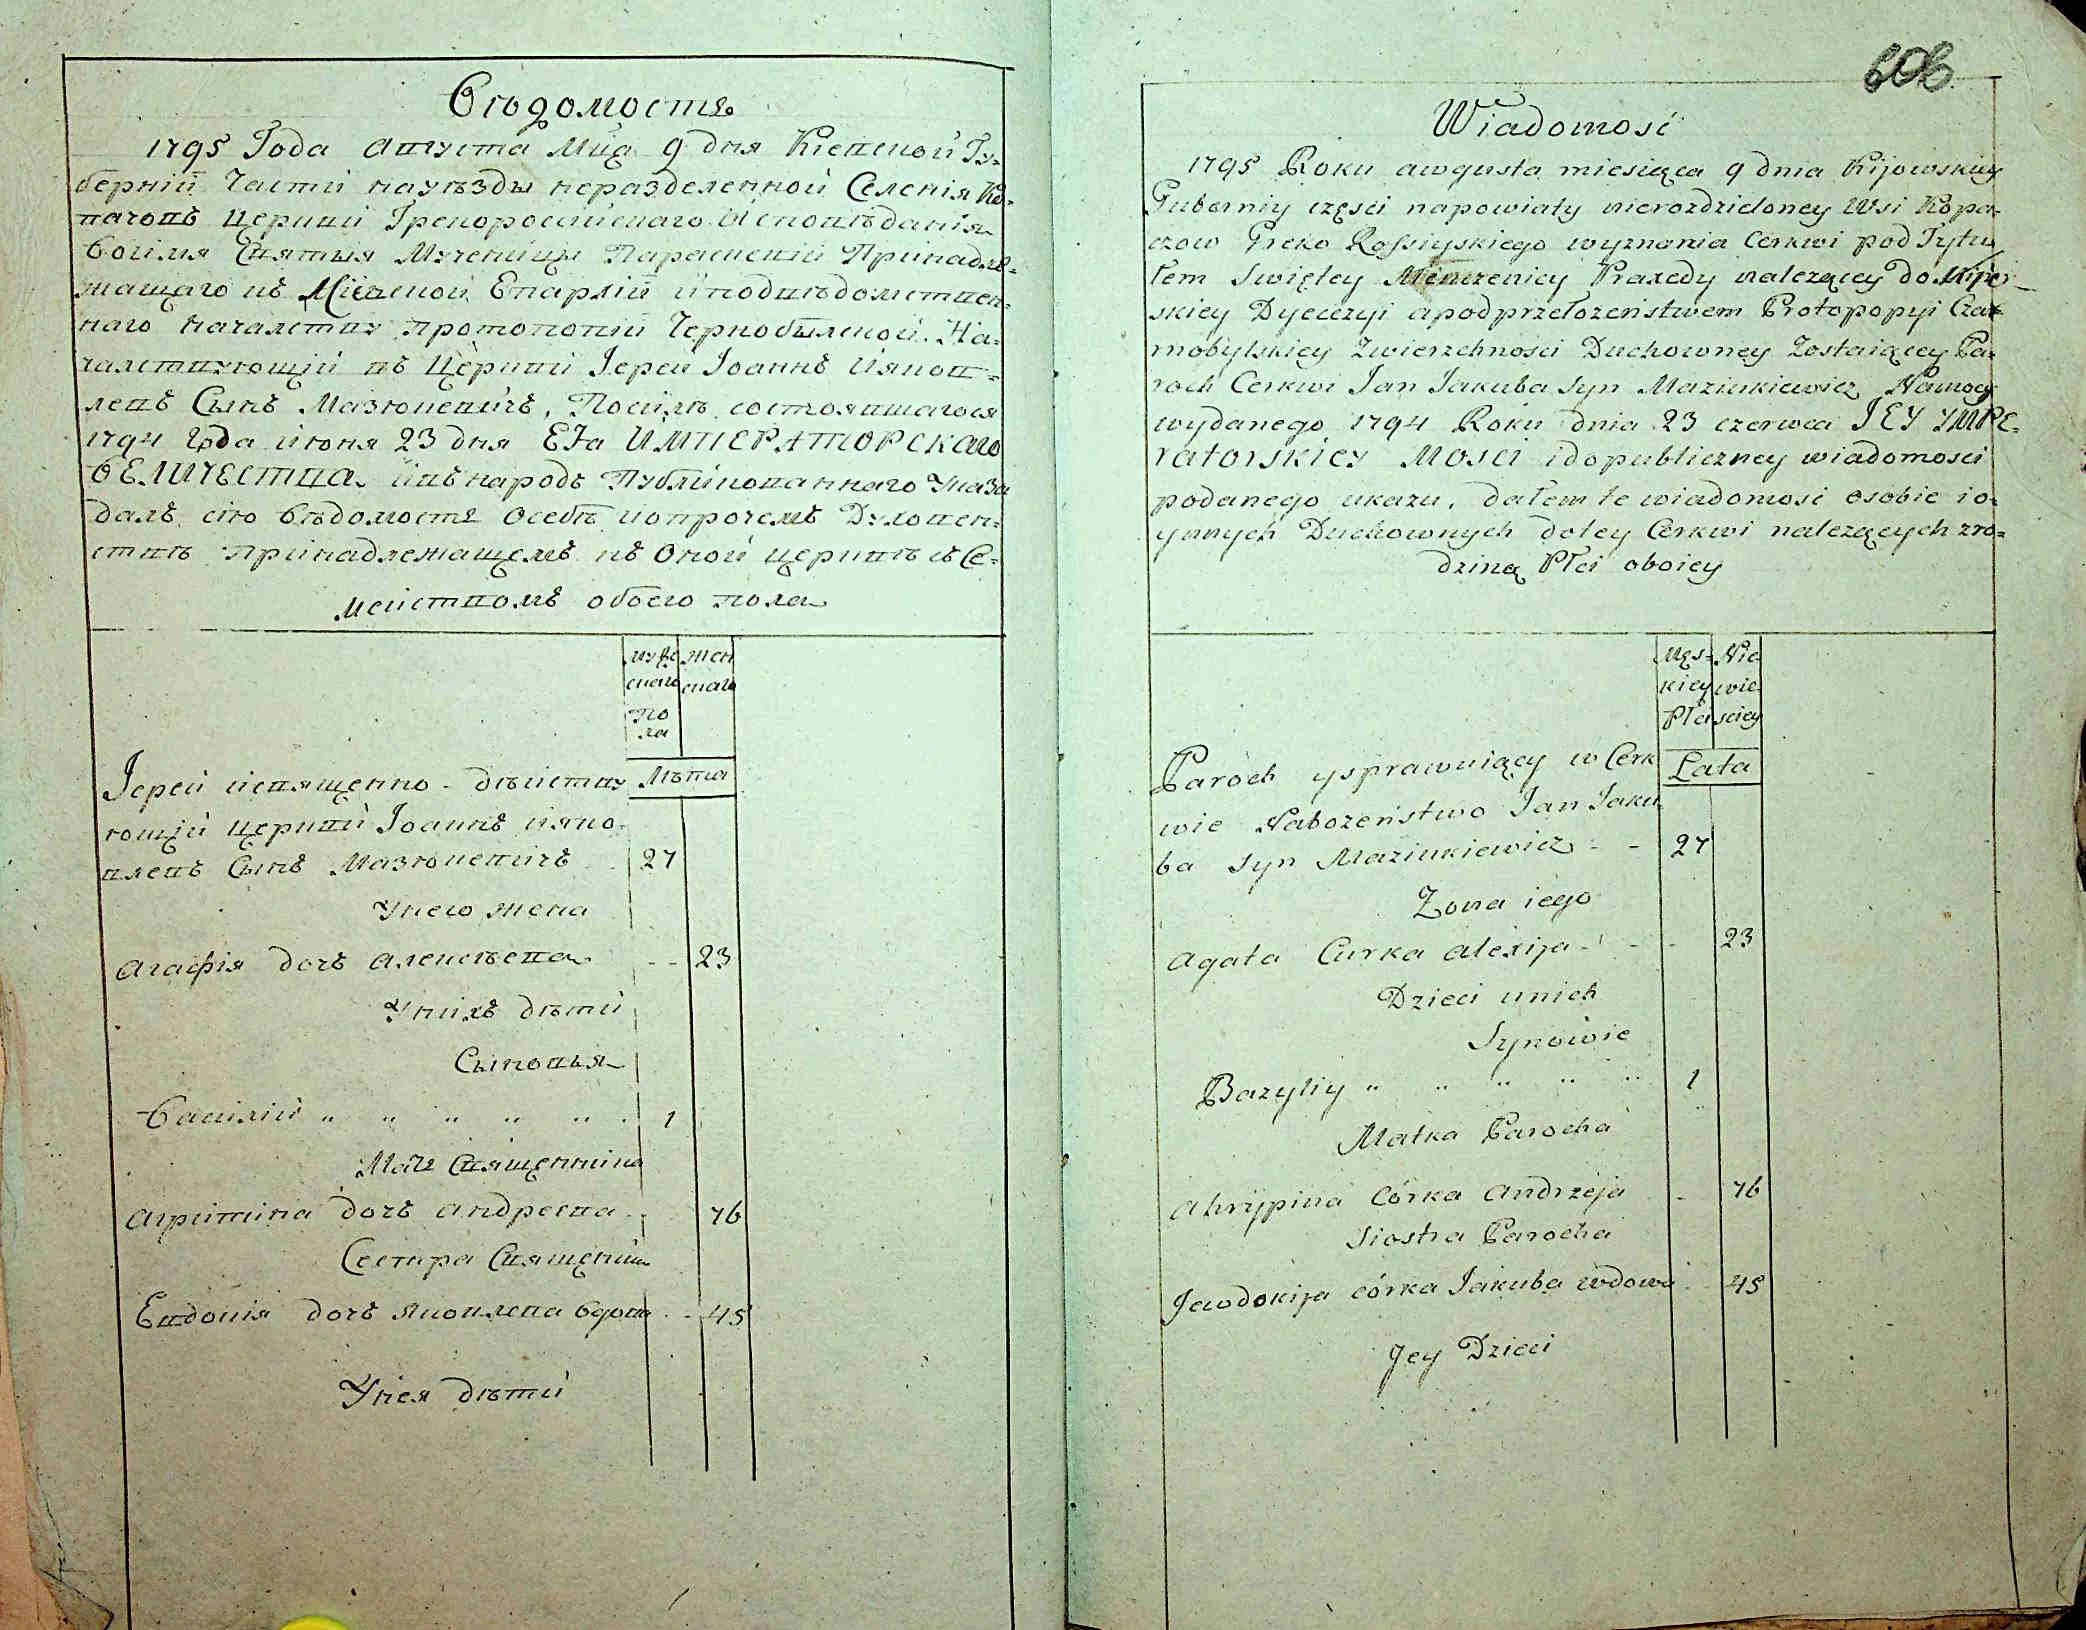 Вѣдомость
1795 Года Августа Мца 9 дня Кіевской Гу-
берніи Части науѣзды неразделенной Селенія Ко-
пачовъ Церкви Грекороссійскаго Исповѣданія
Воімя Святыя Мученицы Параскевіи Принадле-
жащаго къ Кіевской Епархіи иподвѣдомствен-
наго началству протопопіи Чернобылской. На-
чалствующій въ Церкви Іерей Іоаннъ Иаков-
левъ Сынъ Мазюкевичъ, Посилѣ состоявшагося
1794 Года июня 23 дня ЕЯ ИМПЕРАТОРСКАГО
ВЕЛИЧЕСТВА ивъ народъ Публикованнаго Указа
далъ сію вѣдомость Осебѣ иопрочемъ Духовен-
ствѣ принадлежащемъ къ Оной церквѣ съ Се-
мействомъ обоего пола
мужс жен
скаго скаго
по
ла
Лѣта
Іерей исвященно-дѣйству
ющій церкви Іоаннъ иако-
влевъ Сынъ Мазюкевичъ 27
Унего жена
Агафія дочъ Алексѣева 23
Унихъ дѣти
Сыновья
Василій " " " " " 1
Мать Священника
Агрипина дочъ Андреева 76
Сестра Священика
Евдокія дочъ Яковлева вдова 45
Унея дѣти
606.
Wiadomość
1795 Roku awgusta miesiąca 9 dnia Kijowskiey
Guberniy części napowiaty nierozdzieloney Wsi Kopa-
czow Greko Rossiyskiego wyznania Cerkwi pod Tytu
łem Swiętey Męnczenicy Praxedy należącey do Kijew-
skiey Dyecezyi apodprzełożeństwem Protopopyi Czar
nobylskiey Zwierzchności Duchowney Zostaiącey Pa-
roch Cerkwi Jan Jakuba Syn Maziukiewicz, Namocy
wydanego 1794 Roku dnia 23 czerwca JEY YMPE-
ratorskiey Mosci idopubliczney wiadomosci
podanego ukazu, dałem te wiadomosć osobie io-
ynnych Duchownych dotey Cerkwi należących zro-
dziną Płci oboiey
Męs- Nie
kiey wie
Płci sciey
Lata
Paroch ysprawuiący w Cerk
wie Nabożeństwo Jan Jaku
ba Syn Maziukiewicz - - 27
Zona iego
Agata Curka Alexija - - - 23
Dzieci unich
Synowie
Bazyliy " " " " " 1
Matka Parocha
Ahrypina Córka Andrzeja - 76
Siostra Parocha
Jewdokija córka Jakuba wdowa 45
Jey Dzieci